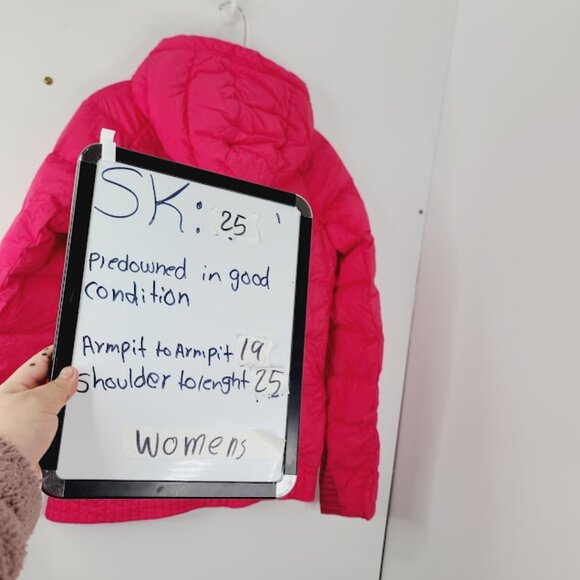 SK: 25
Predowned in good
condition
Armpit to Armpit 19
Shoulder to lenght 25
Womens